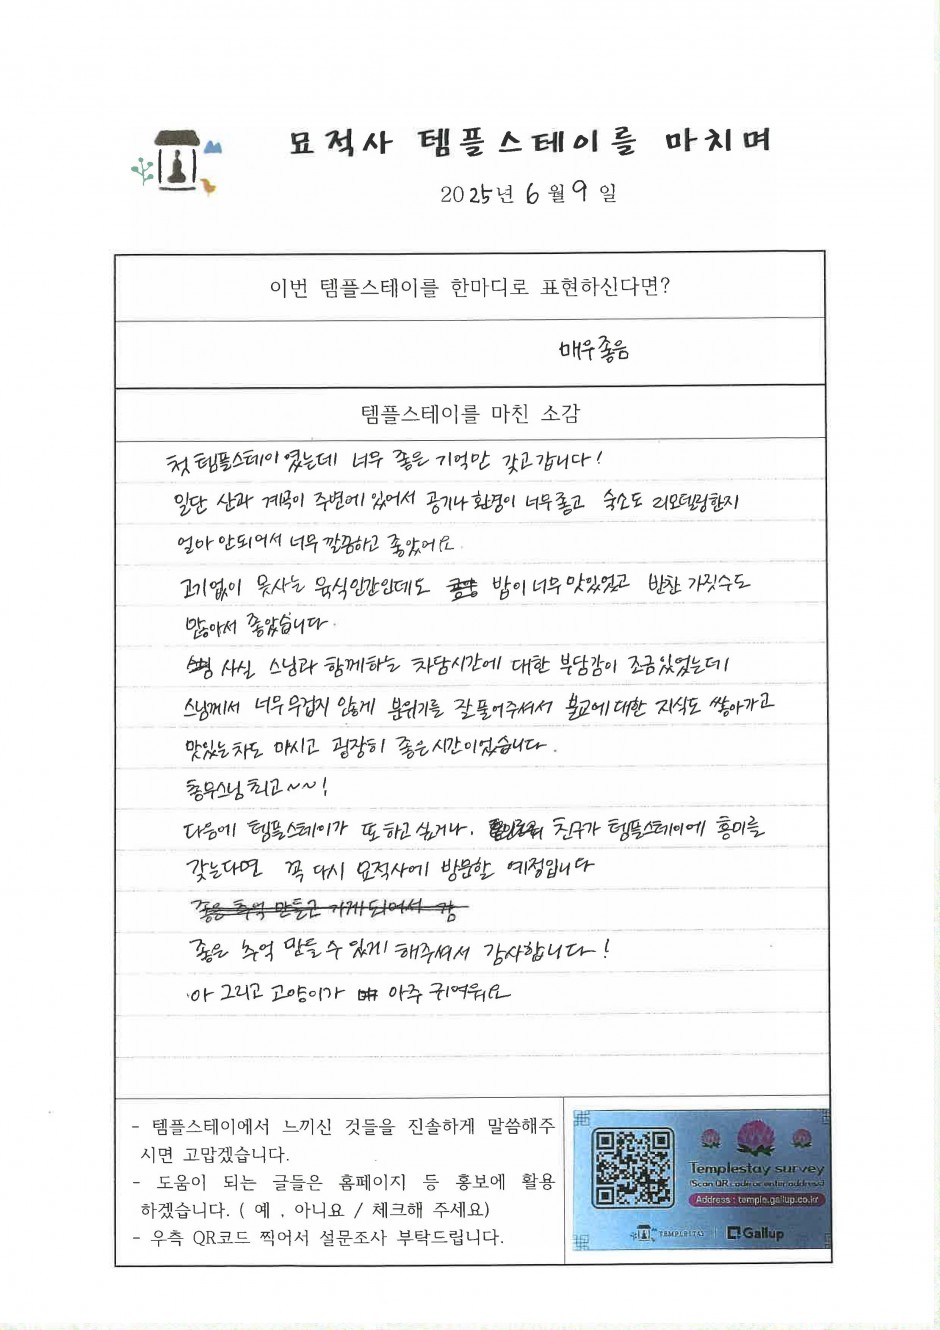 묘적사 템플스테이를 마치며
2025년 6월 9일
이번 템플스테이를 한마디로 표현하신다면?
매우좋음
템플스테이를 마친 소감
첫 템플스테이 였는데 너무 좋은 기억만 갖고갑니다!
일단 산과 계곡이 주변에 있어서 공기나 환경이 너무좋고 숙소도 리모델링한지
얼마 안되어서 너무 깔끔하고 좋았어요.
고기없이 못사는 육식인간인데도 밥이 너무 맛있었고 반찬 가짓수도
많아서 좋았습니다.
사실 스님과 함께하는 차담시간에 대한 부담감이 조금있었는데
스님께서 너무 무겁지 않게 분위기를 잘 풀어주셔서 불교에 대한 지식도 쌓아가고
맛있는차도 마시고 굉장히 좋은시간이었습니다.
총무스님 최고~~!
다음에 템플스테이가 또 하고 싶거나, 친구가 템플스테이에 흥미를
갖는다면 꼭 다시 묘적사에 방문할 예정입니다
좋은 추억 만들고 가게되어서 감
좋은 추억 만들 수 있게 해주셔서 감사합니다!
아 그리고 고양이가 아주 귀여워요
- 템플스테이에서 느끼신 것들을 진솔하게 말씀해주
시면 고맙겠습니다.
- 도움이 되는 글들은 홈페이지 등 홍보에 활용
하겠습니다. ( 예 , 아니요 / 체크해 주세요)
- 우측 QR코드 찍어서 설문조사 부탁드립니다.
Templestay survey
(Scan QR code or enter address)
Address : temple.gallup.co.kr
TEMPLESTAY
Gallup